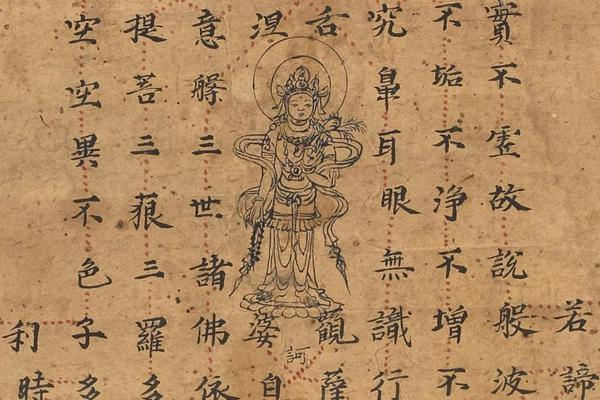 若諦
實不虛故說般波
不垢不淨不增不
究鼻耳眼無識行
舌觀薩
訶
涅婆自
意三世諸佛依
提菩三藐三羅多
空空異不色子多
利時